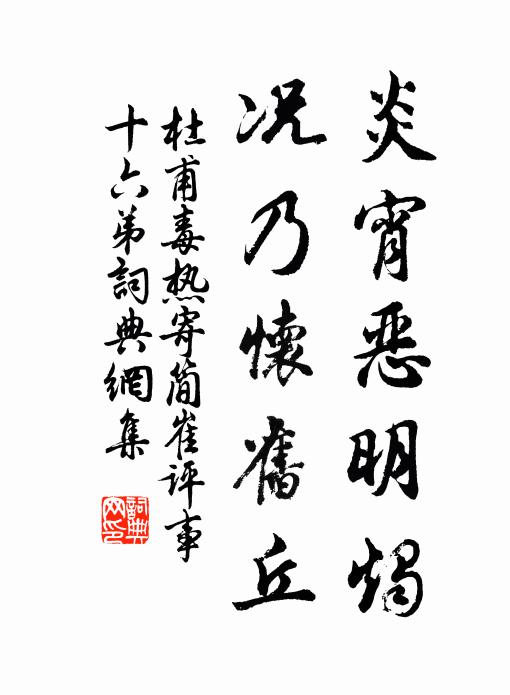 炎宵恶明燭
况乃懷舊丘
杜甫毒热寄簡崔评事
十六弟詞典網集
詞典網印